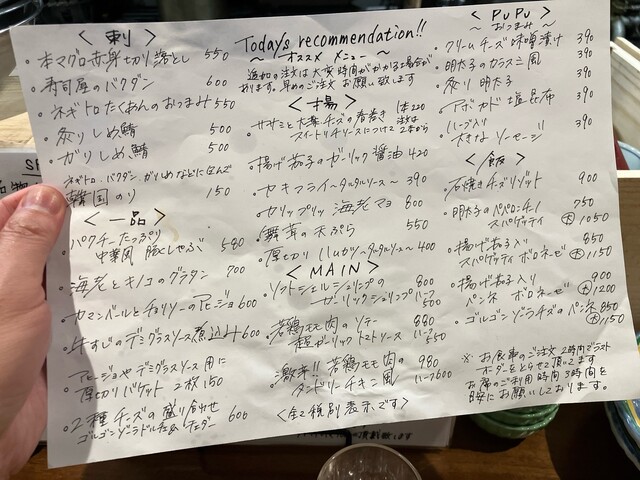 <刺>
・本マグロ赤身切り落とし 550
・寿司屋のバクダン 600
・ネギトロたくあんのおつまみ 550
・炙りしめ鯖 500
・ガリしめ鯖 500
ネギトロ・バクダン・ガリしめなどに包んで
・韓国のり 150
<一品>
・パクチーたっぷり
中華風 豚しゃぶ 580
・海老とキノコのグラタン 700
・カマンベールとチョリソーのアヒージョ 600
・牛すじのデミグラスソース煮込み 600
・アヒージョやデミグラスソース用に
厚切りバケット 2枚 150
・2種チーズの盛り合わせ 600
ゴルゴンゾーラドルチェ& チェダー
Today's recommendation!!
〜オススメ メニュー〜
追加の注文は大変時間がかかる場合が
あります。早めのご注文お願い致します
<揚>
・ササミと大葉チーズの春巻き 1本220
スイートチリソースにつけて 注文は2本から
・揚げ茄子のガーリック醤油 420
・カキフライ〜タルタルソース〜 390
・カリップリッ 海老マヨ 800
・舞茸の天ぷら 550
・厚切りハムカツ〜タルタルソース〜 400
<MAIN>
・ソフトシェルシュリンプの 800
ガーリックシュリンプ ハーフ500
・若鶏モモ肉のソテー 880
超ガーリックトマトソース ハーフ550
・激辛!! 若鶏モモ肉の 980
タンドリーチキン風 ハーフ600
<全て税別表示です>
<PuPu>
〜おつまみ〜
・クリームチーズ味噌漬け 390
・明太子のカラスミ風 390
・炙り明太子 390
・アボカド塩昆布 390
・ハーブ入り
大きなソーセージ 390
<飯>
・石焼きチーズリゾット 900
・明太子のペペロンチーノ 750
スパゲッティ 大1050
・揚げ茄子入り 850
スパゲッティ ボロネーゼ 大1150
・揚げ茄子入り 900
ペンネ ボロネーゼ 大1200
・ゴルゴンゾーラチーズのペンネ 850
大1150
※お食事のご注文 2時間でラスト
オーダーをとらせて頂いてます
お席のご利用時間 3時間を
目安にお願いしております。